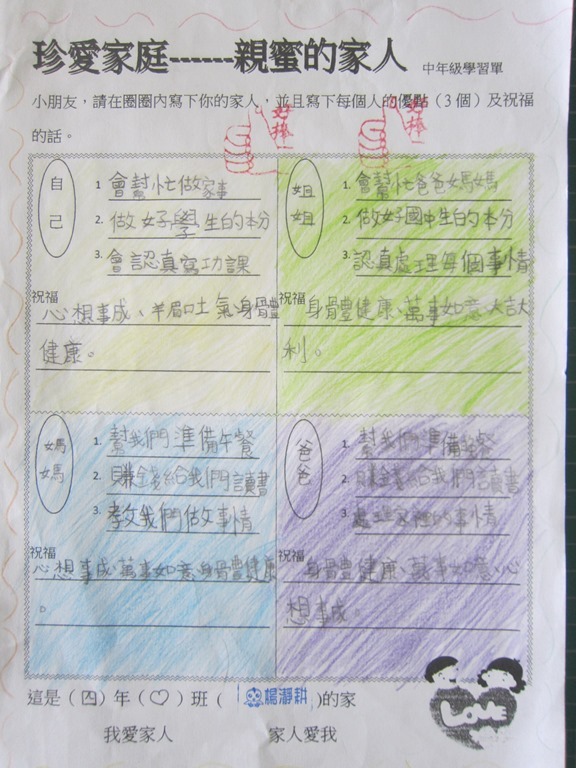 珍愛家庭-------親蜜的家人 中年級學習單
小朋友，請在圈圈內寫下你的家人，並且寫下每個人的優點（3 個）及祝福
的話。
好棒
好棒
自己
1. 會幫忙做家事
2. 做好學生的本分
3. 會認真寫功課
祝福
心想事成、羊眉吐氣、身體
健康。
姐姐
1. 會幫忙爸爸媽媽
2. 做好國中生的本分
3. 認真處理每個事情
祝福
身體健康、萬事如意、大吉大
利。
媽媽
1. 幫我們準備午餐
2. 賺錢給我們讀書
3. 教我們做事情
祝福
心想事成、萬事如意、身體健康
。
爸爸
1. 幫我們準備餐
2. 賺錢給我們讀書
3. 處理家裡的事情
祝福
身體健康、萬事如意、心
想事成。
這是（四）年（♡）班（楊瀞耕）的家
我愛家人 家人愛我
LOVE